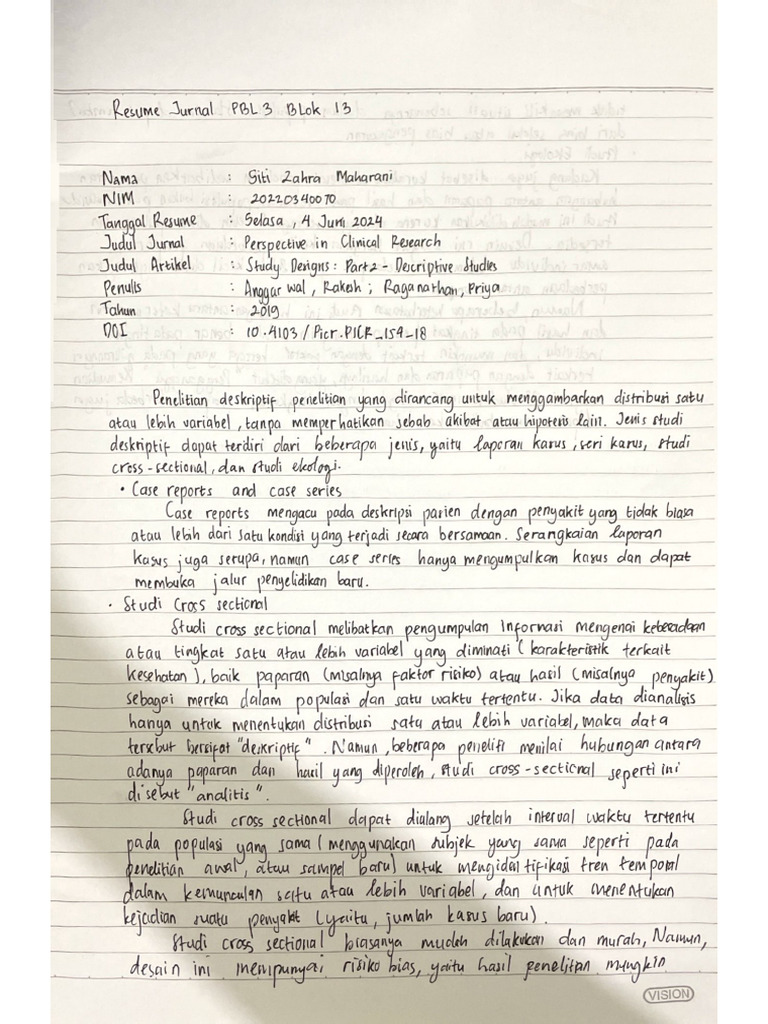 Resume Jurnal PBL 3 Blok 13
Nama : Siti Zahra Maharani
NIM : 20220340070
Tanggal Resume : Selasa, 4 Juni 2024
Judul Jurnal : Perspective in Clinical Research
Judul Artikel : Study Designs: Part 2 - Descriptive Studies
Penulis : Anggar wal, Rakesh ; Raganathan, Priya
Tahun : 2019
DOI : 10.4103/Picr.PICR_154_18
Penelitian deskriptif penelitian yang dirancang untuk menggambarkan distribusi satu
atau lebih variabel, tanpa memperhatikan sebab akibat atau hipotesis lain. Jenis studi
deskriptif dapat terdiri dari beberapa jenis, yaitu laporan kasus, seri kasus, studi
cross-sectional, dan studi ekologi.
• Case reports and case series
Case reports mengacu pada deskripsi pasien dengan penyakit yang tidak biasa
atau lebih dari satu kondisi yang terjadi secara bersamaan. Serangkaian laporan
kasus juga serupa, namun case series hanya mengumpulkan kasus dan dapat
membuka jalur penyelidikan baru.
• Studi Cross sectional
Studi cross sectional melibatkan pengumpulan informasi mengenai keberadaan
atau tingkat satu atau lebih variabel yang diminati (karakteristik terkait
kesehatan), baik paparan (misalnya faktor risiko) atau hasil (misalnya penyakit)
sebagai mereka dalam populasi dan satu waktu tertentu. Jika data dianalisis
hanya untuk menentukan distribusi satu atau lebih variabel, maka data
tersebut bersifat "deskriptif". Namun, beberapa peneliti menilai hubungan antara
adanya paparan dan hasil yang diperoleh, studi cross-sectional seperti ini
disebut "analitis".
Studi cross sectional dapat dialang setelah interval waktu tertentu
pada populasi yang sama (menggunakan subjek yang sama seperti pada
penelitian awal, atau sampel baru) untuk mengidentifikasi tren temporal
dalam kemunculan satu atau lebih variabel, dan untuk menentukan
kejadian suatu penyakit (yaitu, jumlah kasus baru).
Studi cross sectional biasanya mudah dilakukan dan murah, Namun,
desain ini mempunyai risiko bias, yaitu hasil penelitian mungkin
VISION